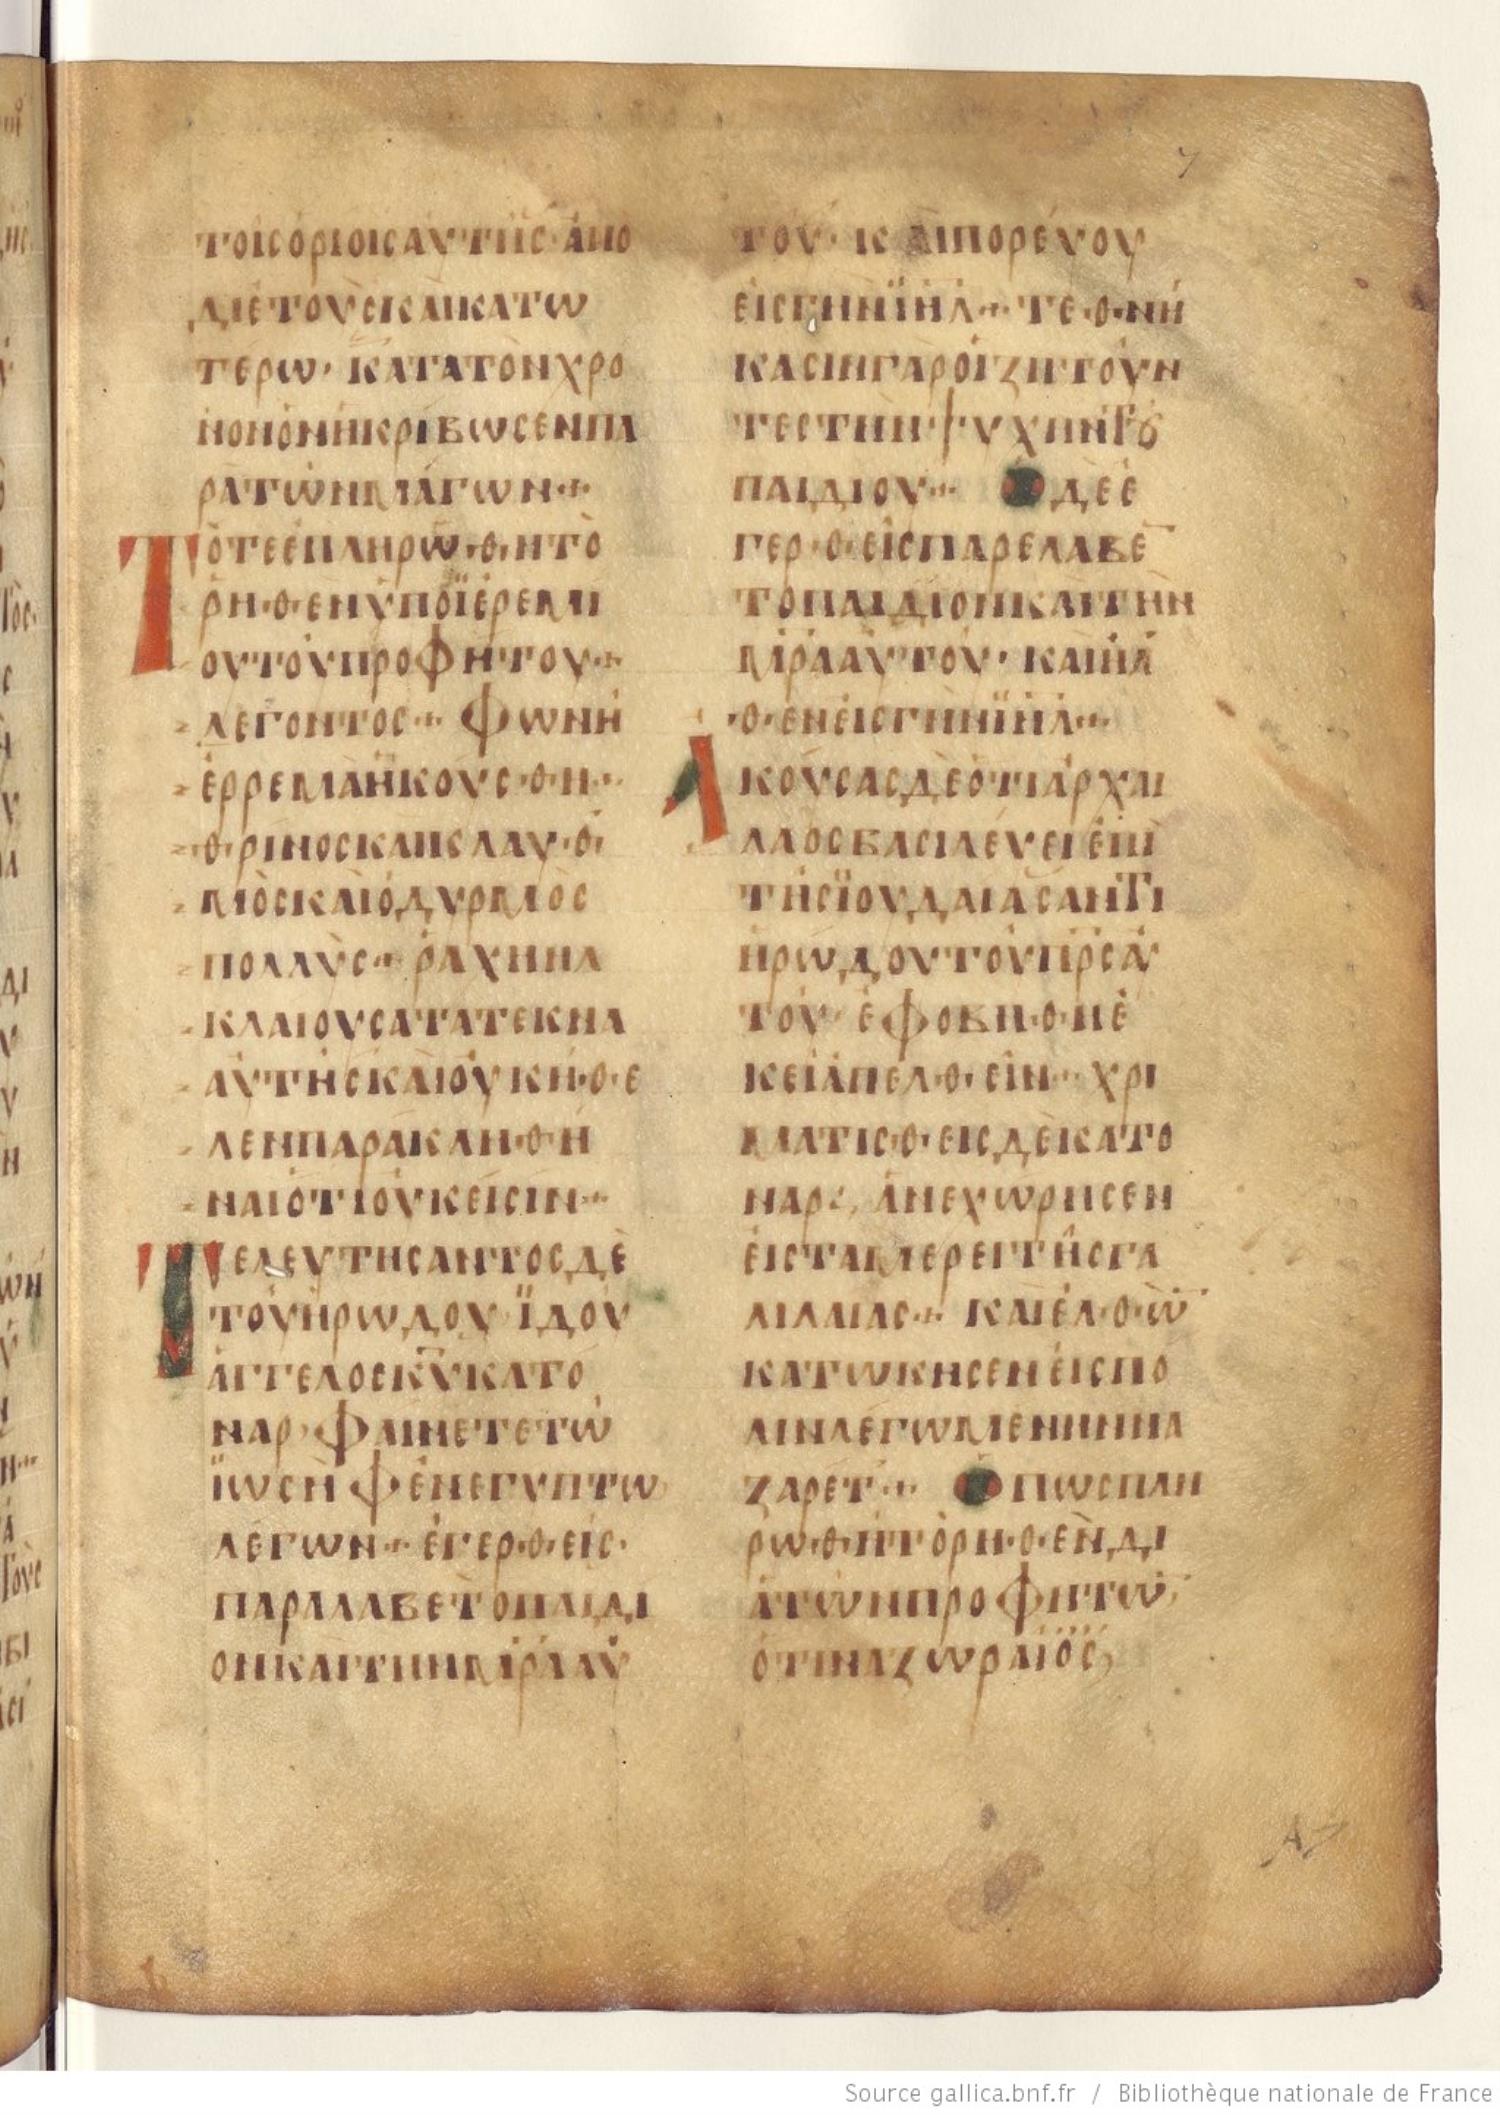 7
ΤΟΙϹΟΡΙΟΙϹΑΥΤΗϹ· ΑΠΟ
ΔΙΕΤΟΥϹΚΑΙΚΑΤΩ
ΤΕΡΩ· ΚΑΤΑΤΟΝΧΡΟ
ΝΟΝΟΝΗΚΡΙΒΩϹΕΝΠΑ
ΡΑΤΩΝΜΑΓΩΝ··
ΤΟΤΕΕΠΛΗΡΩ·Θ·ΗΤΟ
ΡΗ·Θ·ΕΝΥΠΟΪΕΡΕΜΙ
ΟΥΤΟΥΠΡΟΦΗΤΟΥ··
ΛΕΓΟΝΤΟϹ·· ΦΩΝΗ
ΕΡΡΕΜΑΗΚΟΥϹ·Θ·Η··
·Θ·ΡΙΝΟϹΚΑΙΚΛΑΥ·Θ·
ΜΟϹΚΑΙΟΔΥΡΜΟϹ
ΠΟΛΛΥϹ·· ΡΑΧΗΗΛ
ΚΛΑΙΟΥϹΑΤΑΤΕΚΝΑ
ΑΥΤΗϹΚΑΙΟΥΚΗ·Θ·Ε
ΛΕΝΠΑΡΑΚΛΗ·Θ·Η
ΝΑΙΟΤΙΟΥΚΕΙϹΙΝ··
ΤΕΛΕΥΤΗϹΑΝΤΟϹΔΕ
ΤΟΥΗΡΩΔΟΥ ΪΔΟΥ
ΑΓΓΕΛΟϹΚ̅Υ̅ΚΑΤΟ
ΝΑΡ· ΦΑΙΝΕΤΕΤΩ
ΪΩϹΗΦΕΝΕΓΥΠΤΩ
ΛΕΓΩΝ·· ΕΓΕΡ·Θ·ΕΙϹ·
ΠΑΡΑΛΑΒΕΤΟΠΑΙΔΙ
ΟΝΚΑΙΤΗΝΜ̅Ρ̅Α̅ΑΥ
ΤΟΥ· ΚΑΙΠΟΡΕΥΟΥ
ΕΙϹΓΗΝΪΗ̅Λ̅·· ΤΕ·Θ·ΝΗ
ΚΑϹΙΝΓΑΡΟΙΖΗΤΟΥΝ
ΤΕϹΤΗΝΨΥΧΗΝΤȢ
ΠΑΙΔΙΟΥ·· ΟΔΕΕ
ΓΕΡ·Θ·ΕΙϹΠΑΡΕΛΑΒΕ̅
ΤΟΠΑΙΔΙΟΝΚΑΙΤΗΝ
Μ̅Ρ̅Α̅ΑΥΤΟΥ· ΚΑΙΗΛ
·Θ·ΕΝΕΙϹΓΗΝΪΗ̅Λ̅··
ΑΚΟΥϹΑϹΔΕΟΤΙΑΡΧΑΙ
ΛΑΟϹΒΑϹΙΛΕΥΕΙΕΠΙ
ΤΗϹΪΟΥΔΑΙΑϹΑΝΤΙ
ΗΡΩΔΟΥΤΟΥΠ̅Ρ̅Ϲ̅ΑΥ
ΤΟΥ· ΕΦΟΒΗ·Θ·ΗΕ
ΚΕΙΑΠΕΛ·Θ·ΕΙΝ·· ΧΡΙ
ΜΑΤΙϹ·Θ·ΕΙϹΔΕΚΑΤΟ
ΝΑΡ·, ΑΝΕΧΩΡΗϹΕΝ
ΕΙϹΤΑΜΕΡΕΙΤΗϹΓΑ
ΛΙΛΑΙΑϹ·· ΚΑΙΕΛ·Θ·Ω̅
ΚΑΤΩΚΗϹΕΝΕΙϹΠΟ
ΛΙΝΛΕΓΩΜΕΝΗΝΝΑ
ΖΑΡΕΤ·· ΟΠΩϹΠΛΗ
ΡΩ·Θ·ΗΤΟΡΗ·Θ·ΕΝΔΙ
ΑΤΩΝΠΡΟΦΗΤΩ̅
ΟΤΙΝΑΖΩΡΑΙΟϹ
Source gallica.bnf.fr / Bibliothèque nationale de France